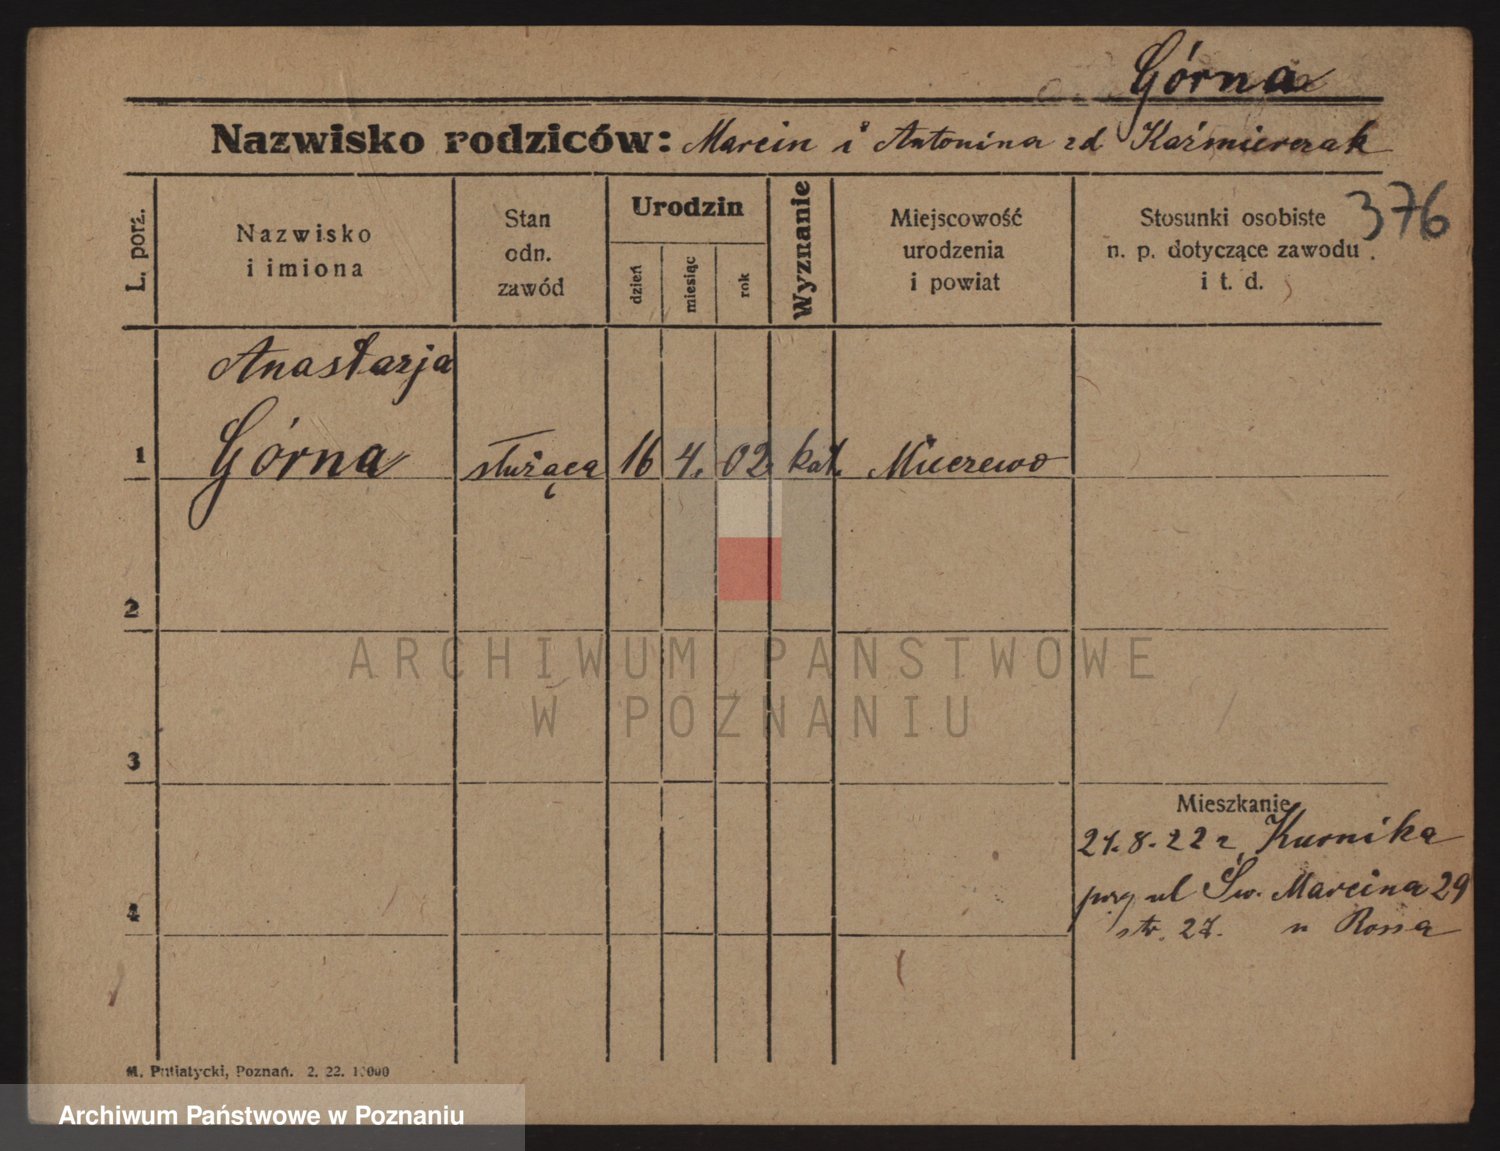 Górna
Nazwisko rodziców: Marcin i Antonina zd Kaźmierczak
376
L. porz.
Nazwisko
i imiona
Stan
odn.
zawód
Urodzin
dzień
miesiąc
rok
Wyznanie
Miejscowość
urodzenia
i powiat
Stosunki osobiste
n. p. dotyczące zawodu
i t. d.
Anastazja
1 Górna służąca 16 4. 02. kat. Mieczewo
2
3
4
Mieszkanie
8.22 z Kurnika
przy ul Św. Marcina 29
str. 27. u Rossa
M. Putiatycki, Poznań. 2. 22. 10000
ARCHIWUM PAŃSTWOWE
W POZNANIU
Archiwum Państwowe w Poznaniu